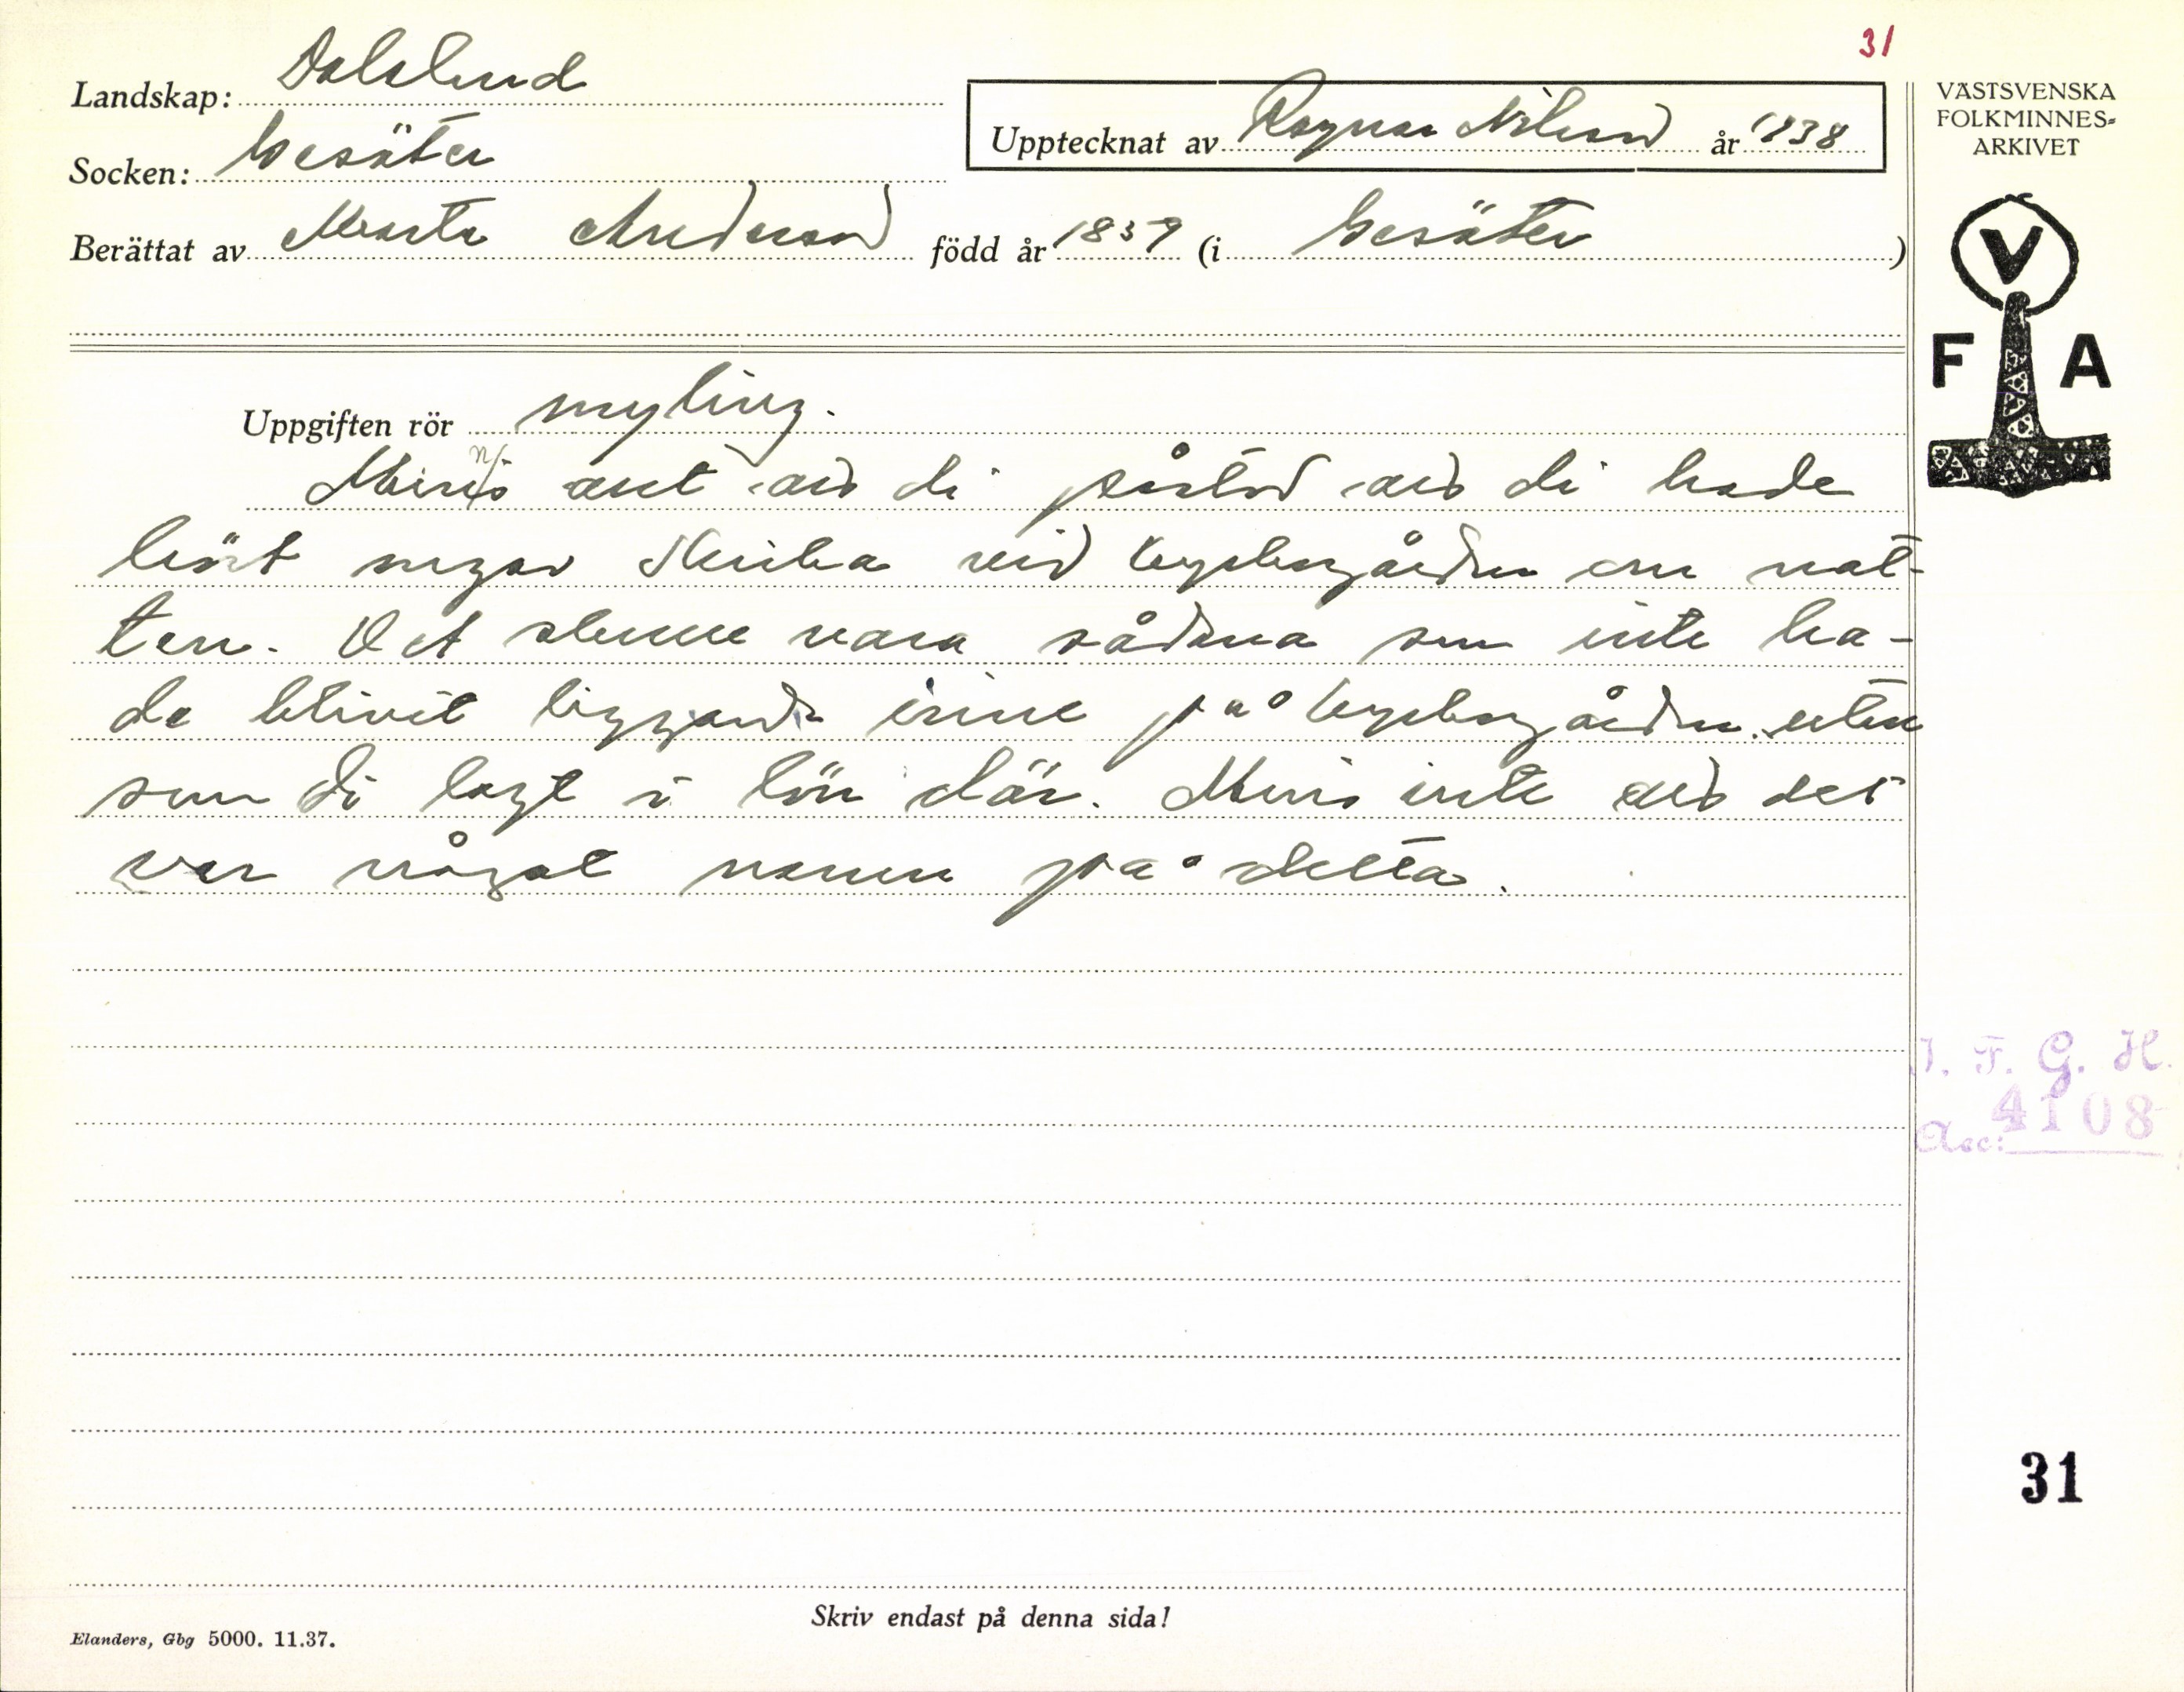 31
Landskap: Dalsland
Upptecknat av Ragnar Nilsson år 1938
Socken: Gesäter
Berättat av Marta Andersson född år 1859 (i Gesäter)
Uppgiften rör myling.
Minns ant att di påstod att di hade
hört någon skrika vid kyrkogården om nat-
ten. Det skulle vara sådana som inte ha-
de blivit liggande inne på kyrkogården utan
som di lagt i lön där. Minns inte att det
var något namn på detta.
Skriv endast på denna sida!
Elanders, Gbg 5000. 11.37.
VÄSTSVENSKA
FOLKMINNES-
ARKIVET
V
F A
I. F. G. H.
Acc: 4108
31